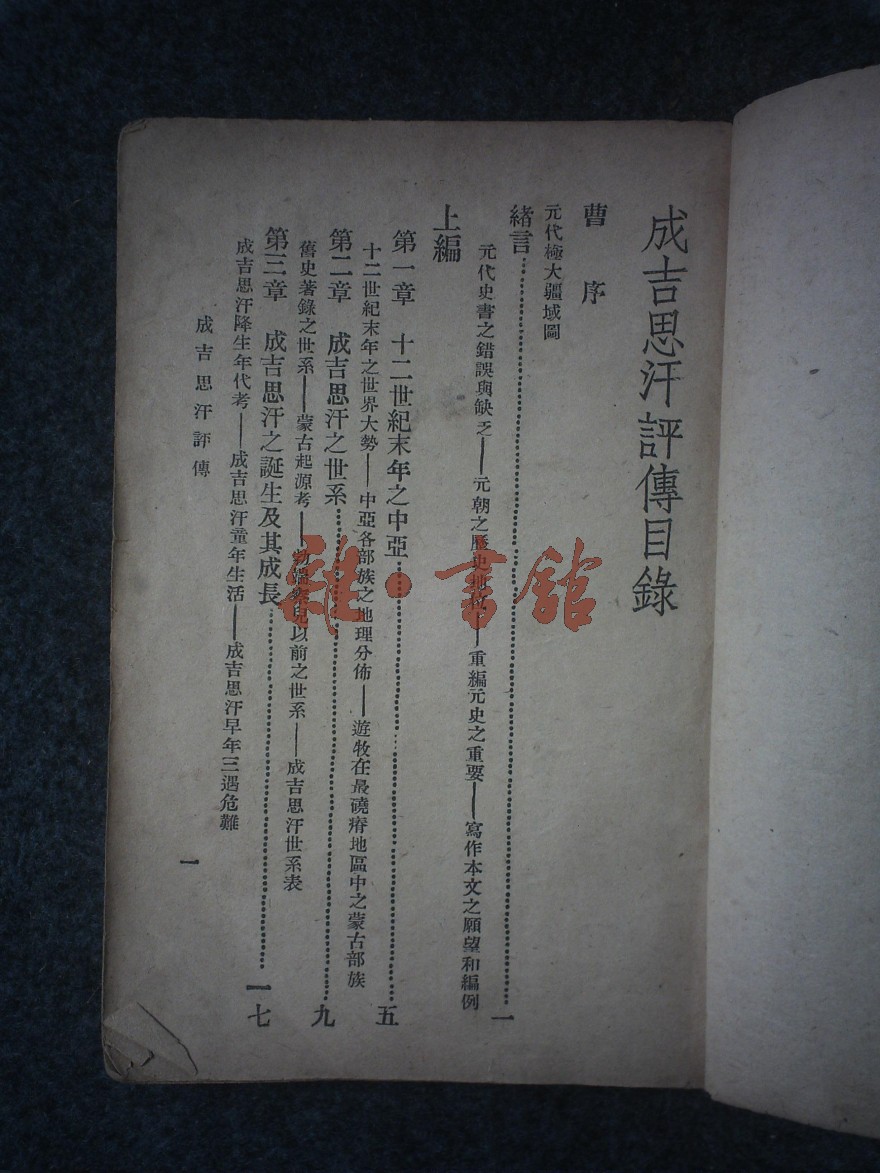 成吉思汗評傳目錄
曹 序
元代極大疆域圖
緒言……一
元代史書之錯誤與缺乏——元朝之歷史地位——重編元史之重要——寫作本文之願望和編例
上編
第一章 十二世紀末年之中亞……五
十二世紀末年之世界大勢——中亞各部族之地理分佈——遊牧在最磽瘠地區中之蒙古部族
第二章 成吉思汗之世系……九
舊史著錄之世系——蒙古起源考——勃端察兒以前之世系——成吉思汗世系表
第三章 成吉思汗之誕生及其成長……一七
成吉思汗降生年代考——成吉思汗童年生活——成吉思汗早年三遇危難
成吉思汗評傳
一
雜·書館